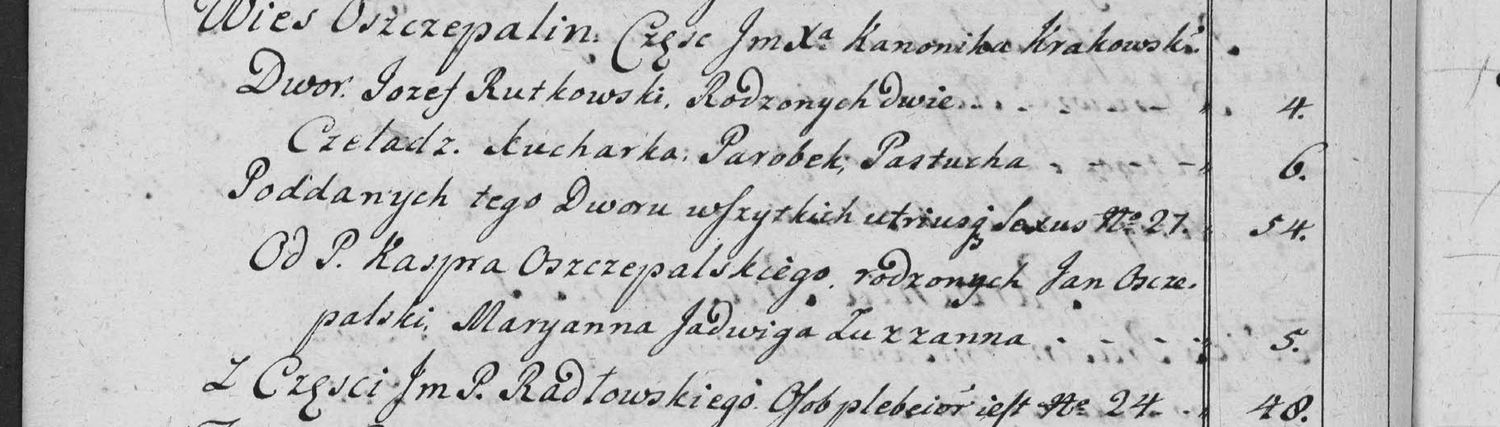 Wies Oszczepalin. Częsc Jm Xa Kanonika Krakowski.
Dwor. Jozef Rutkowski. Rodzonych dwie . . . . - - " 4.
Czeladz. Kucharka. Parobek, Pastucha . - - - " 6.
Poddanych tego Dworu wszytkich utriusq Sexus No 27. " 54.
Od P. Kaspra Oszczepalskiego. rodzonych Jan Oscze-
palski, Maryanna Jadwiga Zuzzanna . - - - " 5.
Z Częsci Jm P. Radłowskiego. Osob plebeior iest No 24. - " 48.